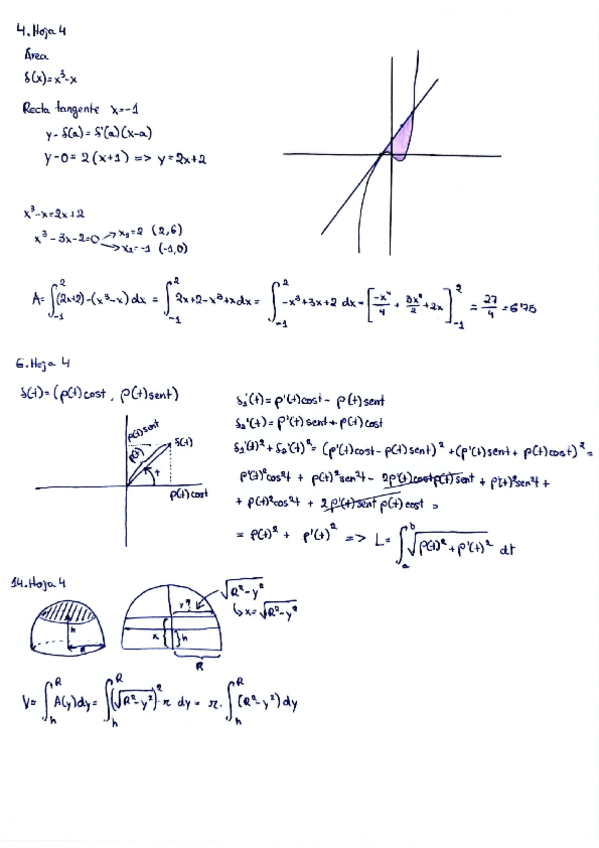 4. Hoja 4
Área
f(x)=x³-x
Recta tangente x=-1
y-f(a)=f'(a)(x-a)
y-0=2(x+1) => y=2x+2
x³-x=2x+2
x³-3x-2=0 → x₁=2 (2,6)
→ x₂=-1 (-1,0)
A=∫₋₁² (2x+2)-(x³-x)dx = ∫₋₁² 2x+2-x³+x dx = ∫₋₁² -x³+3x+2 dx = [-x⁴/4 + 3x²/2 + 2x]₋₁² = 27/4 = 6'75
6. Hoja 4
f(t)=(ρ(t)cost, ρ(t)sent)
ρ(t)sent
ρ(t)
f(t)
t
ρ(t)cost
f₁'(t)=ρ'(t)cost-ρ(t)sent
f₂'(t)=ρ'(t)sent+ρ(t)cost
f₁'(t)²+f₂'(t)²=(ρ'(t)cost-ρ(t)sent)²+(ρ'(t)sent+ρ(t)cost)²=
ρ'(t)²cos²t + ρ(t)²sen²t - 2ρ'(t)costρ(t)sent + ρ'(t)²sen²t +
+ ρ(t)²cos²t + 2ρ'(t)sent ρ(t)cost =
= ρ(t)² + ρ'(t)² => L=∫ₐᵇ √(ρ(t)²+ρ'(t)²) dt
14. Hoja 4
h
R
x?
√(R²-y²)
↳ x=√(R²-y²)
x
h
R
V=∫ₕᴿ A(y)dy = ∫ₕᴿ (√(R²-y²))²·π dy = π·∫ₕᴿ (R²-y²)dy